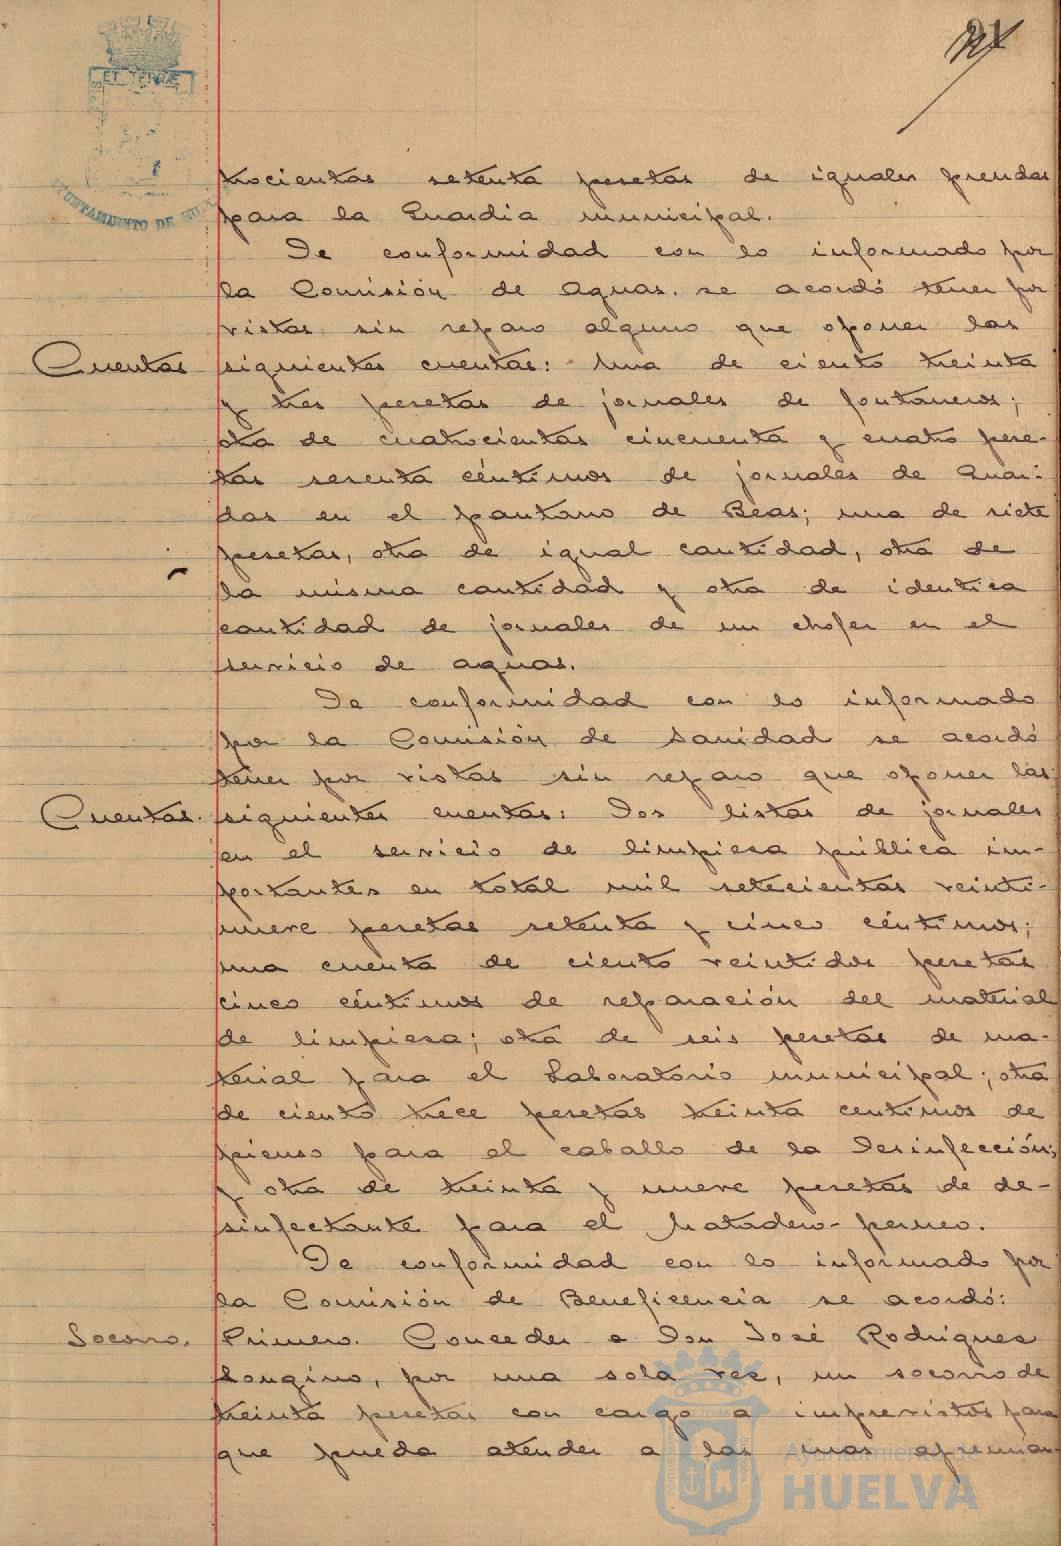 ET TERRÆ
AYUNTAMIENTO DE HUELVA
trocientas setenta pesetas de iguales prendas
para la Guardia municipal.
De conformidad con lo informado por
la Comisión de Aguas, se acordó tener por
vistas sin reparo alguno que oponer las
Cuentas siguientes cuentas: Una de ciento treinta
y tres pesetas de jornales de fontaneros;
otra de cuatrocientas cincuenta y cuatro pese-
tas sesenta céntimos de jornales de Guar-
das en el pantano de Beas; una de siete
pesetas, otra de igual cantidad, otra de
la misma cantidad y otra de identica
cantidad de jornales de un chofer en el
servicio de aguas.
De conformidad con lo informado
por la Comisión de Sanidad se acordó
tener por vistas sin reparo que oponer las
Cuentas. siguientes cuentas: Dos listas de jornales
en el servicio de limpieza pública im-
portantes en total mil setecientas veinti-
nueve pesetas setenta y cinco céntimos;
una cuenta de ciento veintidos pesetas
cinco céntimos de reparación del material
de limpieza; otra de seis pesetas de ma-
terial para el Laboratorio municipal; otra
de ciento trece pesetas treinta centimos de
pienso para el caballo de la Desinfección;
y otra de treinta y nueve pesetas de de-
sinfectante para el Matadero-perneo.
De conformidad con lo informado por
la Comisión de Beneficencia se acordó:
Socorro. Primero. Conceder a Don José Rodrigues
Longino, por una sola vez, un socorro de
treinta pesetas con cargo a imprevistos para
que pueda atender a las mas apremian-
Ayuntamiento de
HUELVA